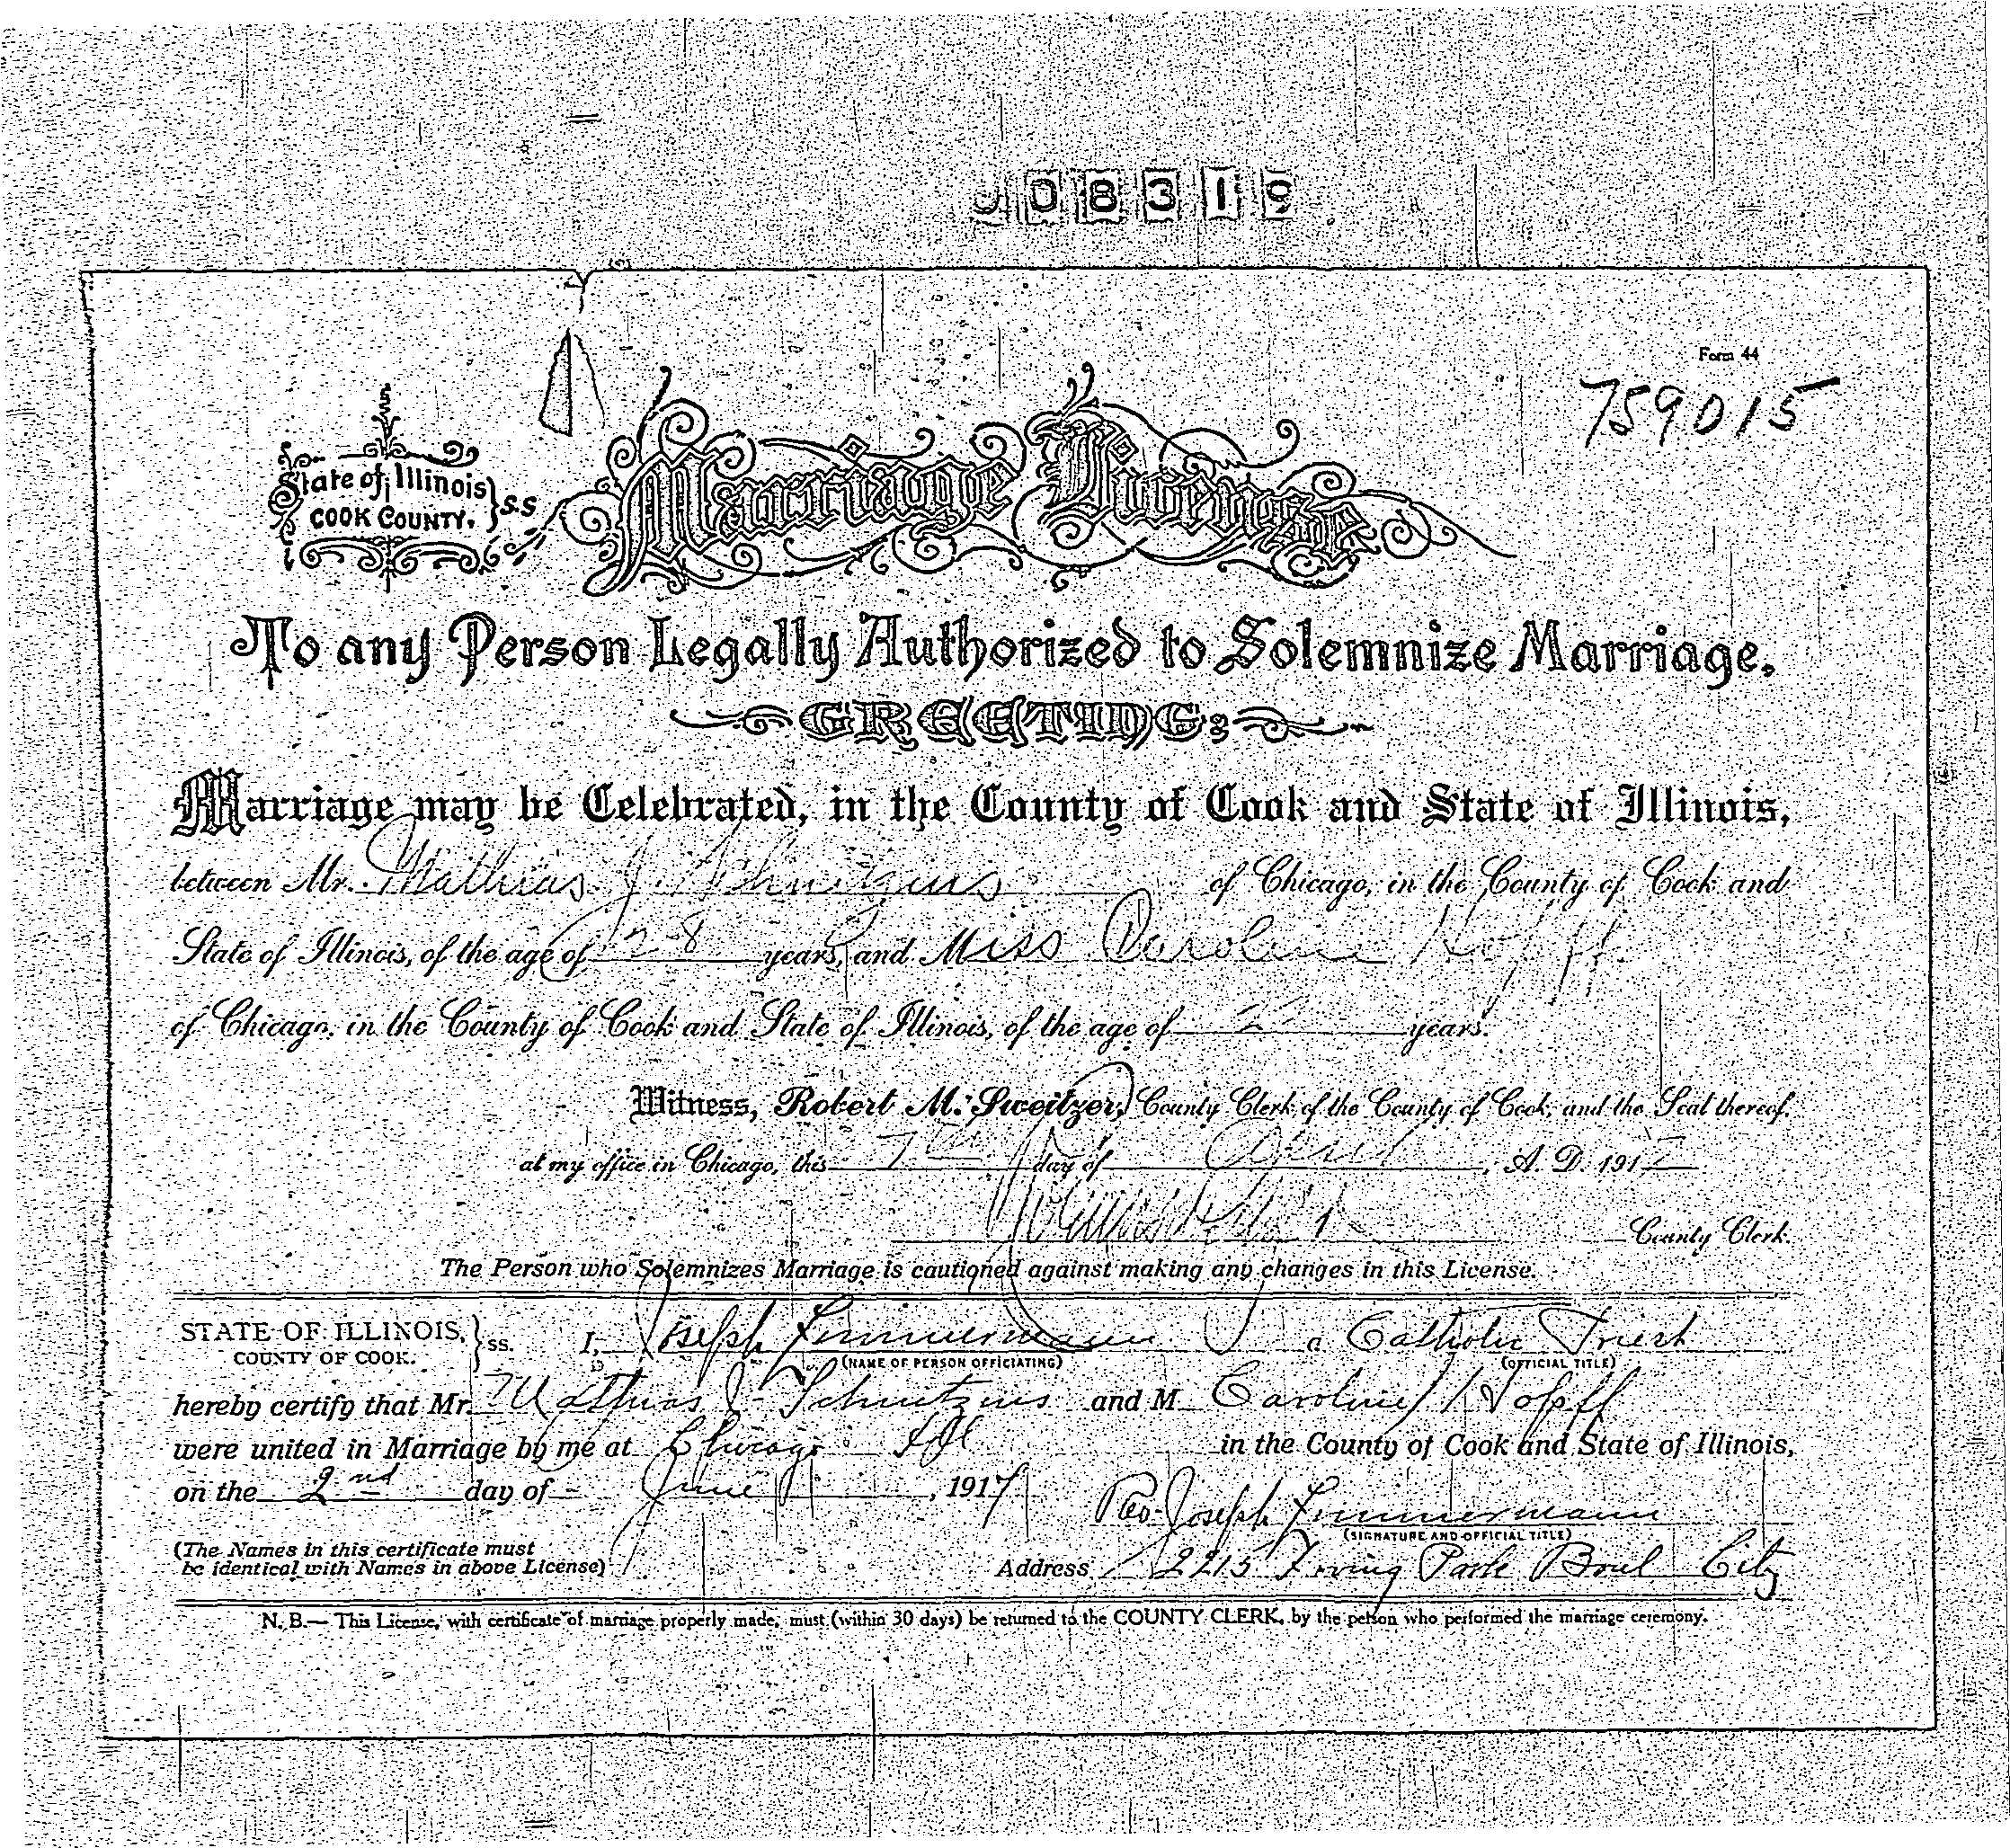 08319
Form 44
759015
State of Illinois
COOK COUNTY. } S.S
Marriage License
To any Person Legally Authorized to Solemnize Marriage,
GREETING:
Marriage may be Celebrated, in the County of Cook and State of Illinois,
between Mr. Mathias J. Schmitzius of Chicago, in the County of Cook and
State of Illinois, of the age of 28 years, and Miss Caroline Hopff
of Chicago, in the County of Cook and State of Illinois, of the age of years.
Witness, Robert M. Sweitzer, County Clerk of the County of Cook, and the Seal thereof,
at my office in Chicago, this 7th day of April, A. D. 1917
County Clerk.
The Person who Solemnizes Marriage is cautioned against making any changes in this License.
STATE OF ILLINOIS, } ss. I, Joseph Zimmermann a Catholic Priest
COUNTY OF COOK. (NAME OF PERSON OFFICIATING) (OFFICIAL TITLE)
hereby certify that Mr. Mathias J. Schmitzius and M Caroline Hopff
were united in Marriage by me at Chicago Ill in the County of Cook and State of Illinois,
on the 2nd day of June, 1917
Rev. Joseph Zimmermann
(SIGNATURE AND OFFICIAL TITLE)
(The Names in this certificate must
be identical with Names in above License)
Address 2215 Irving Park Boul City
N. B.— This License, with certificate of marriage properly made, must (within 30 days) be returned to the COUNTY CLERK, by the person who performed the marriage ceremony.